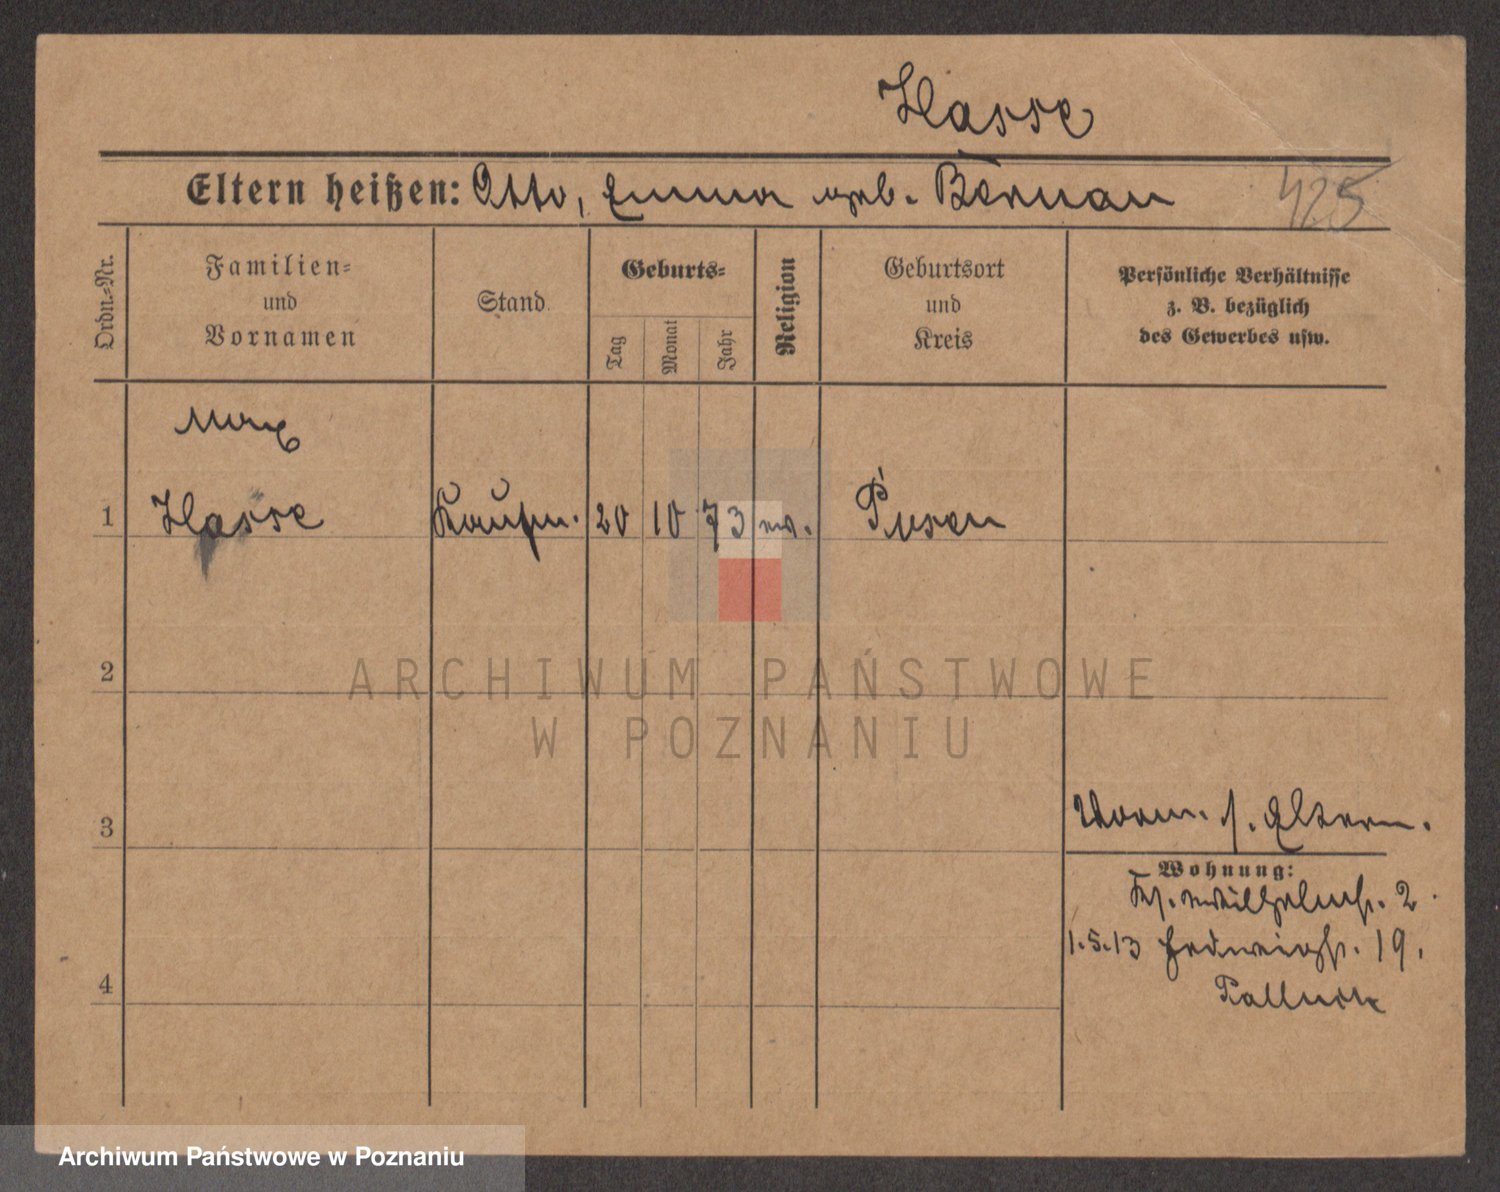 Hasse
Eltern heißen: Otto, Emma geb. Bernau
425
Ordn.=Nr.
Familien=
und
Vornamen
Stand
Geburts=
Tag
Monat
Jahr
Religion
Geburtsort
und
Kreis
Persönliche Verhältnisse
z. B. bezüglich
des Gewerbes usw.
Max
1 Hasse Kaufm. 20 10 73 ev. Posen
2
ARCHIWUM PAŃSTWOWE
W POZNANIU
3
Eltern.
Wohnung:
2
1.5.13 Hedwigstr. 19.
4
Archiwum Państwowe w Poznaniu